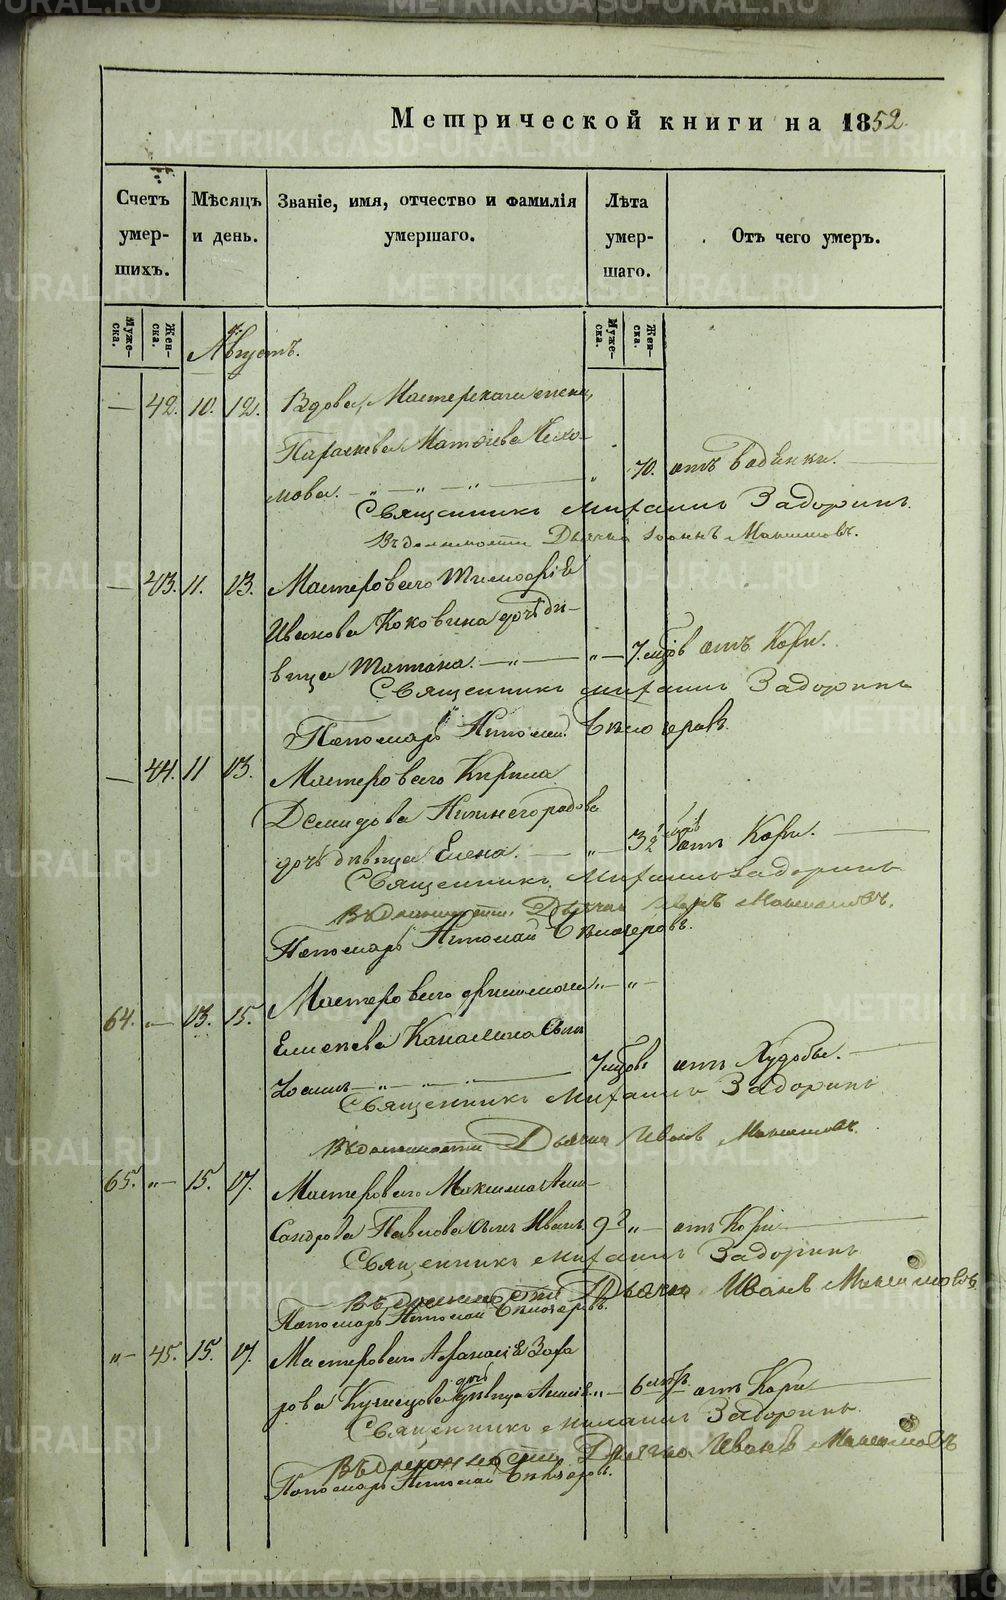 Метрической книги на 1852.
Счетъ умер-шихъ.
Мѣсяцъ и день.
Званіе, имя, отчество и фамилія умершаго.
Лѣта умер-шаго.
Отъ чего умеръ.
Муже-ска.
Жен-ска.
Муже-ска.
Жен-ска.
Августъ.
— 42. 10. 12. Вдова, Мастерскага жена,
Параскева Матѳіева
мова. — „ — „ — „ — „ 70. отъ водянки.
Священникъ Михаилъ Задоринъ.
Въ должности Дьячка Іоаннъ Максимовъ.
— 43. 11. 13. Мастероваго Тимоѳѣя
Иванова Коковина дочь дѣ-
вица Татіана. — „ — „ — 7. мцов отъ Кори.
Священникъ Михаилъ Задоринъ
Пономарь Николай Бѣлозеровъ.
— 44. 11 13. Мастероваго Кирила
Демидова Нижегородова
дочь дѣвица Елена. — „ — 3 ½ годов отъ Кори.
Священникъ Михаилъ Задоринъ
Въ должности Дьячка Максимовъ.
Пономарь Николай Бѣлозеровъ.
64. „ — 13. 15. Мастероваго „ — „ —
Елисеева сынъ
Іоаннъ — „ — „ — „ — 7 мцовъ отъ Худобы.
Священникъ Михаилъ Задоринъ
Въ должности Дьячка Иванъ Максимовъ.
65. „ — 15. 17. Мастероваго Максима Алек-
сандрова Павлова сынъ Иванъ. 9 г „ — отъ Кори
Священникъ Михаилъ Задоринъ
Въ должности Дьячка Иванъ Максимовъ
Пономарь Николай Бѣлозеровъ.
„ — 45. 15. 17. Мастероваго Аѳанасія Заха
рова Кузнецова дочь дѣвица „ — 6 отъ Кори
Священникъ Михаилъ Задоринъ.
Въ должности Дьячка Иванъ Максимовъ
Пономарь Николай Бѣлозеровъ.
METRIKI.GASO-URAL.RU